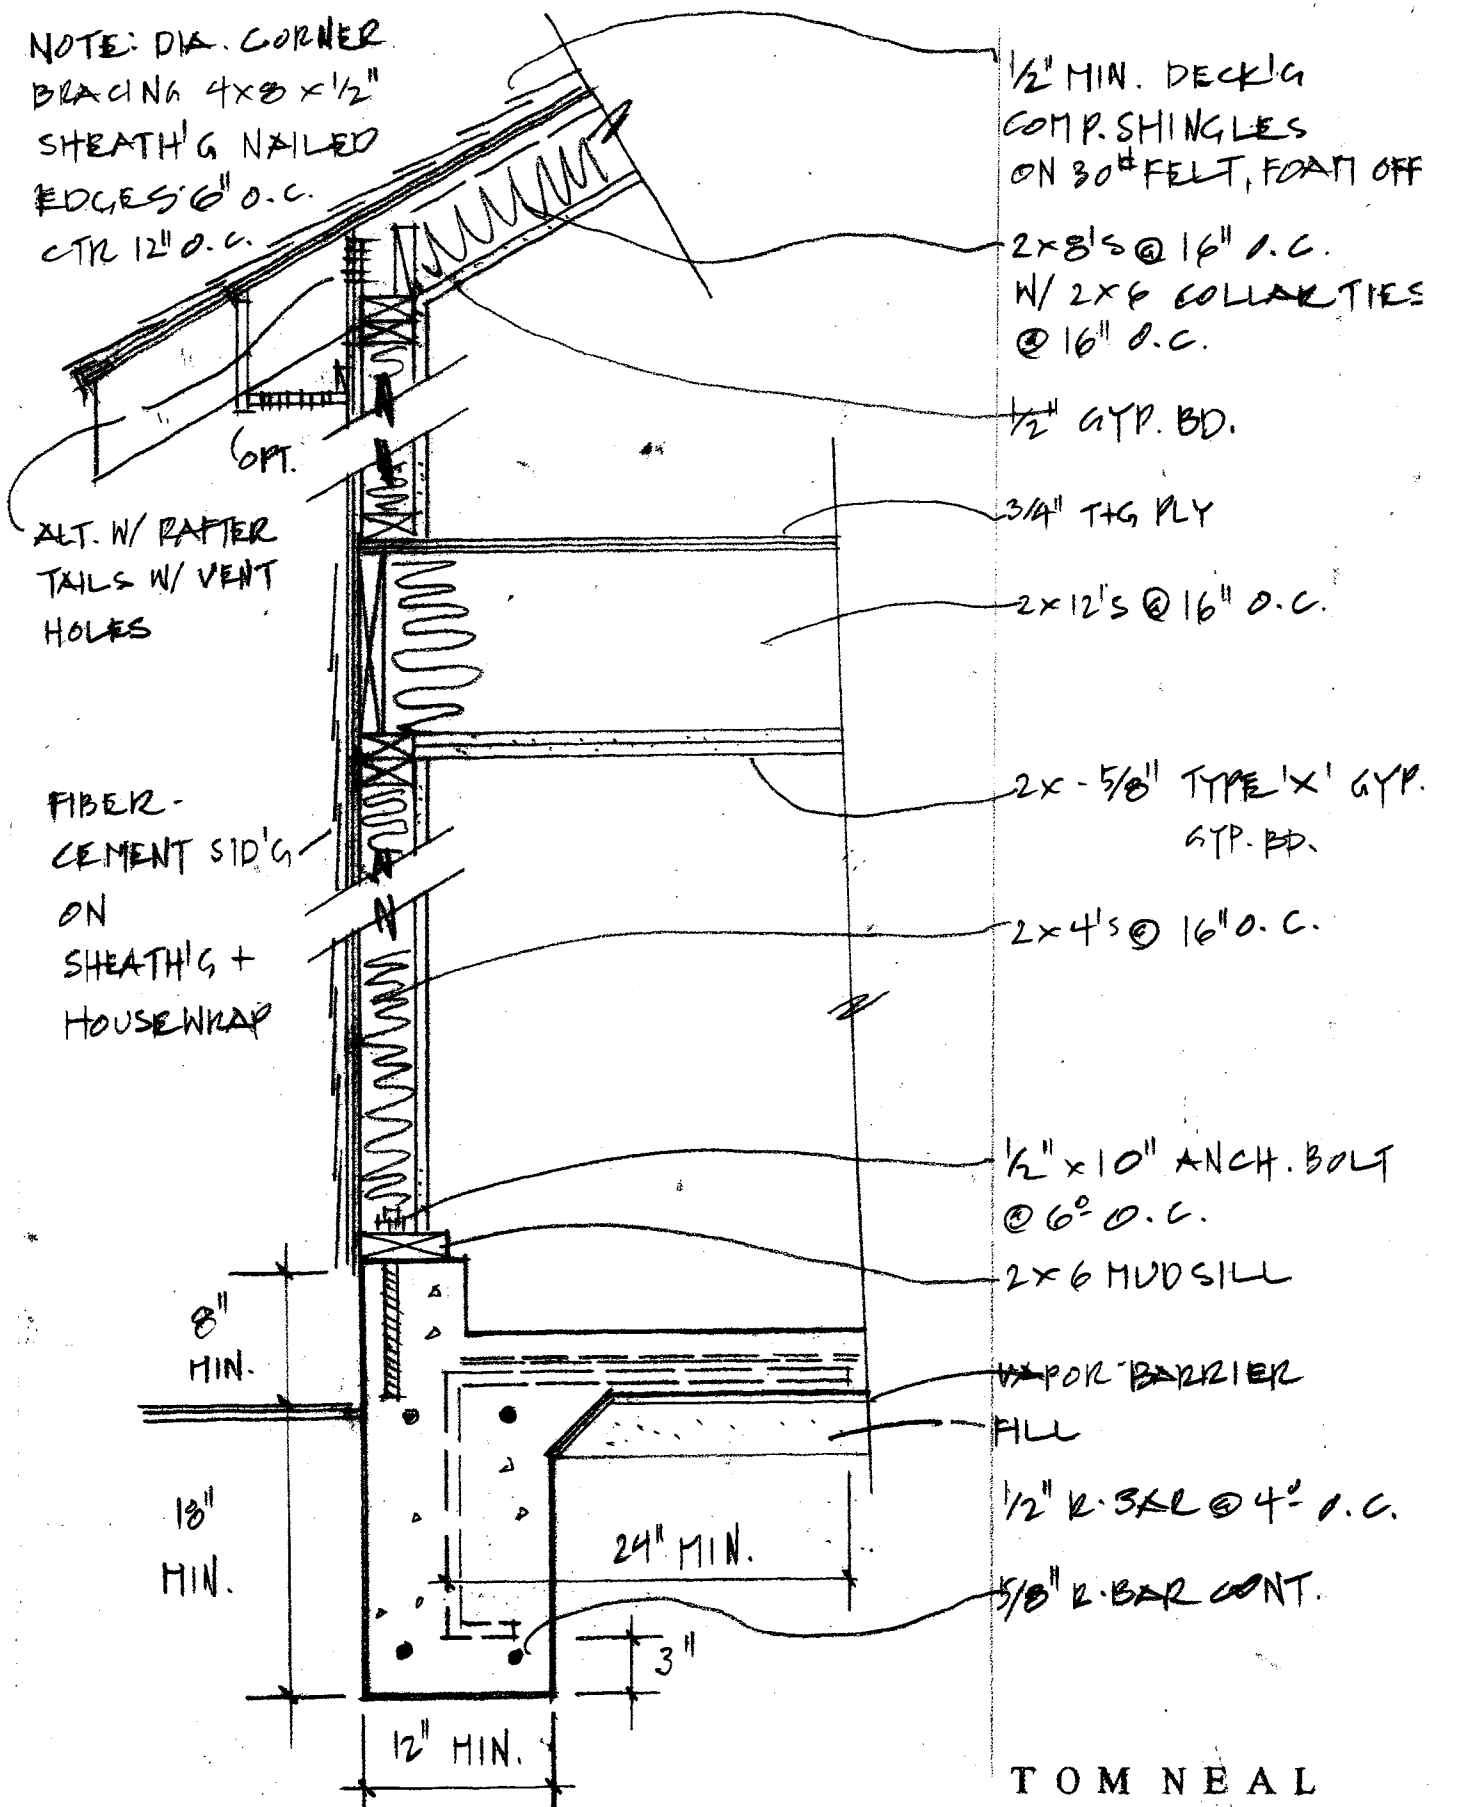 NOTE: DIA. CORNER
BRACING 4x8 x 1/2"
SHEATH'G NAILED
EDGES 6" O.C.
CTR 12" O.C.
OPT.
ALT. W/ RAFTER
TAILS W/ VENT
HOLES
FIBER-
CEMENT SID'G
ON
SHEATH'G +
HOUSEWRAP
8"
MIN.
18"
MIN.
12" MIN.
24" MIN.
3"
1/2" MIN. DECK'G
COMP. SHINGLES
ON 30# FELT, FOAM OFF
2x8'S @ 16" O.C.
W/ 2x6 COLLAR TIES
@ 16" O.C.
1/2" GYP. BD.
3/4" T+G PLY
2x12'S @ 16" O.C.
2x - 5/8" TYPE 'X' GYP.
GYP. BD.
2x4'S @ 16" O.C.
1/2" x 10" ANCH. BOLT
@ 6° O.C.
2x6 MUDSILL
VAPOR BARRIER
FILL
1/2" R-BAR @ 4° O.C.
5/8" R-BAR CONT.
TOM NEAL